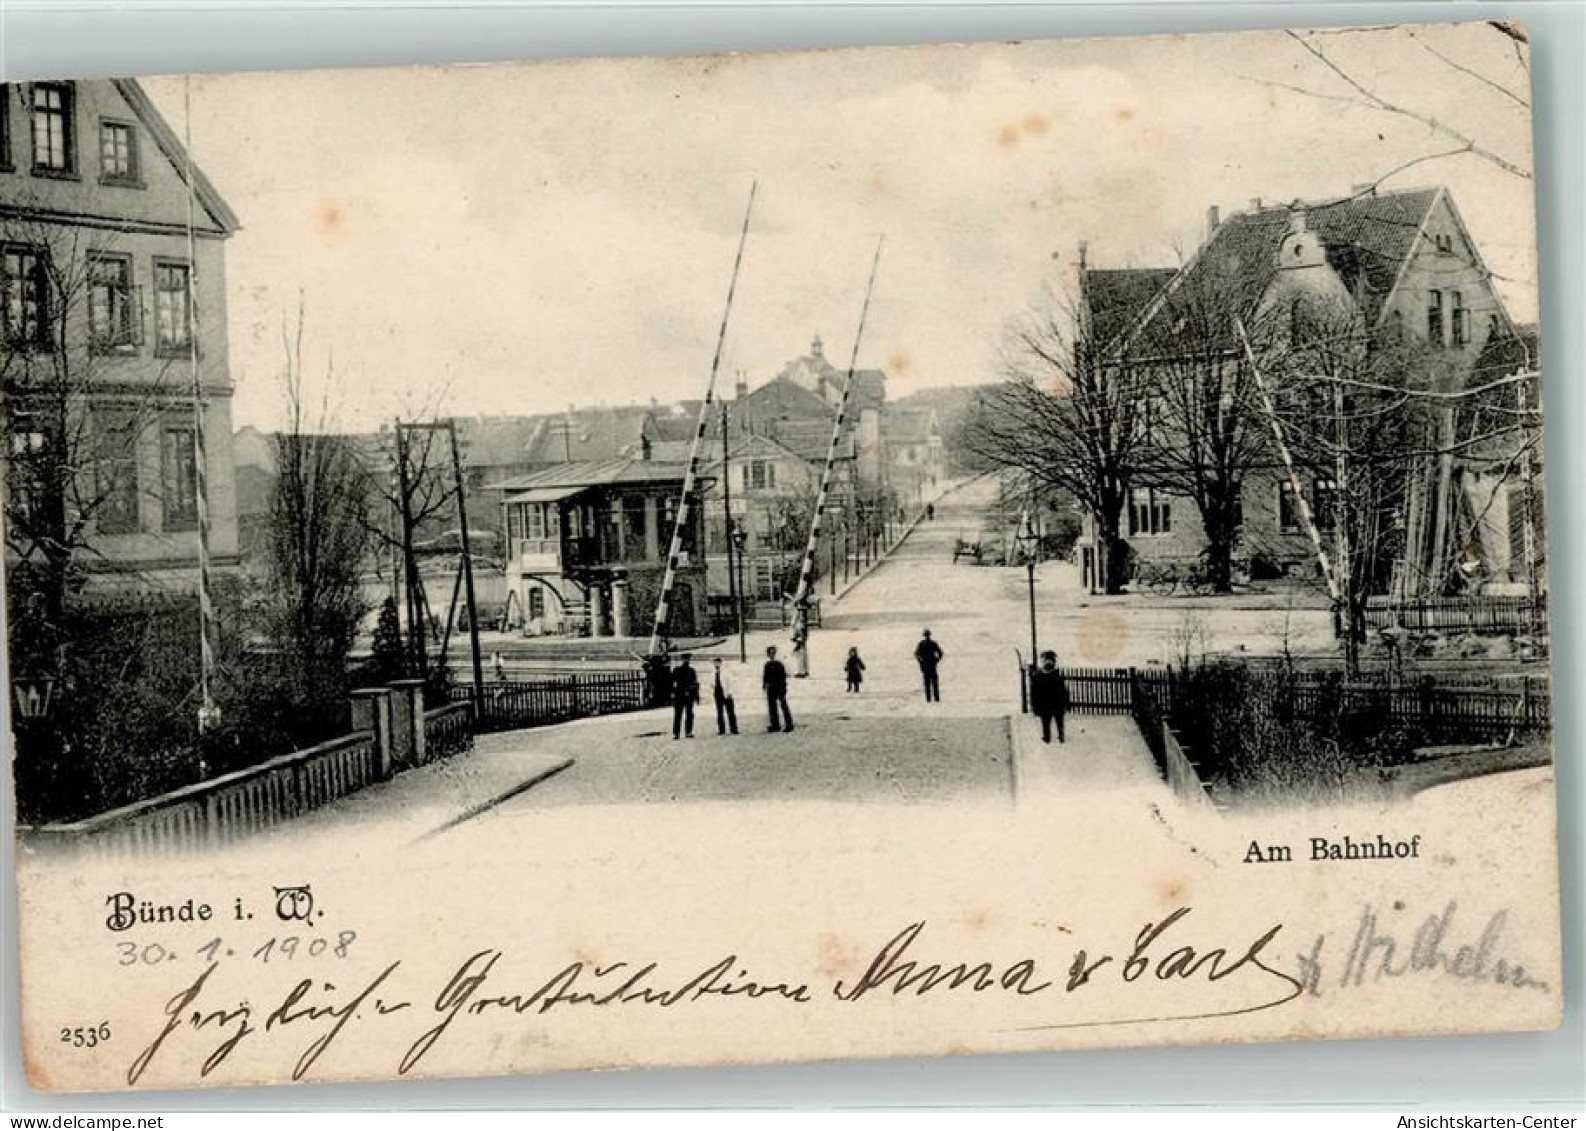 Am Bahnhof
Bünde i. W.
30. 1. 1908
Herzliche Gratulation Anna u Carl
Wilhelm
2536
www.delcampe.net
Ansichtskarten-Center